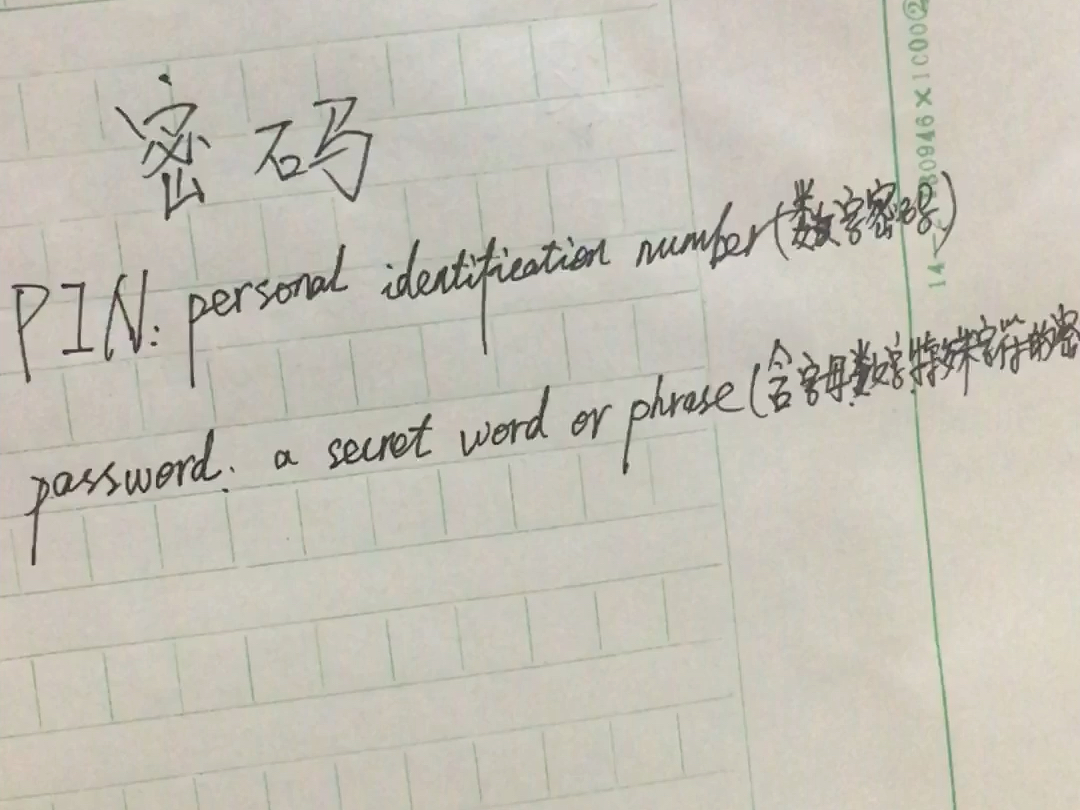 密码
PIN: personal identification number(数字密码)
password: a secret word or phrase(含字母数字特殊字符的密
80946×1C00②